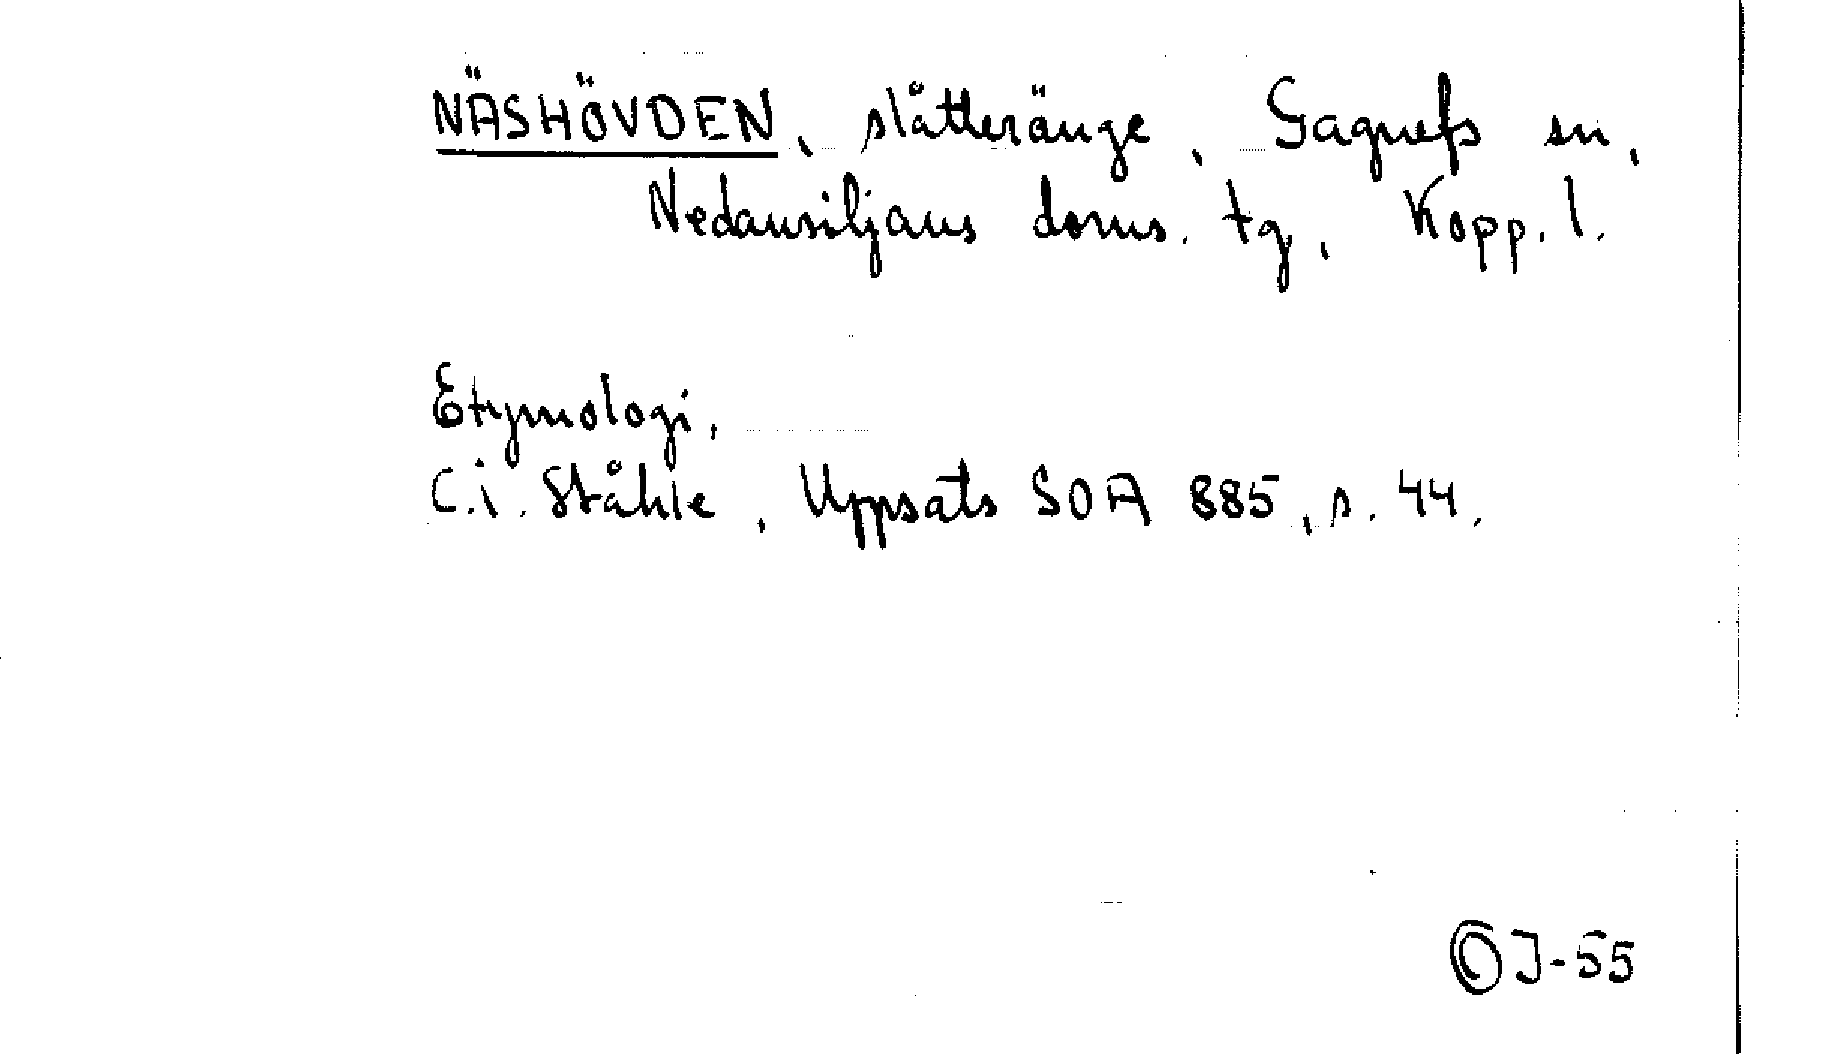 NÄSHÖVDEN, slåtteränge, Gagnefs sn,
Nedansiljans doms. tg, Kopp. l.
Etymologi,
C.i. Ståhle, Uppsats SOA 885, s. 44.
OJ-55